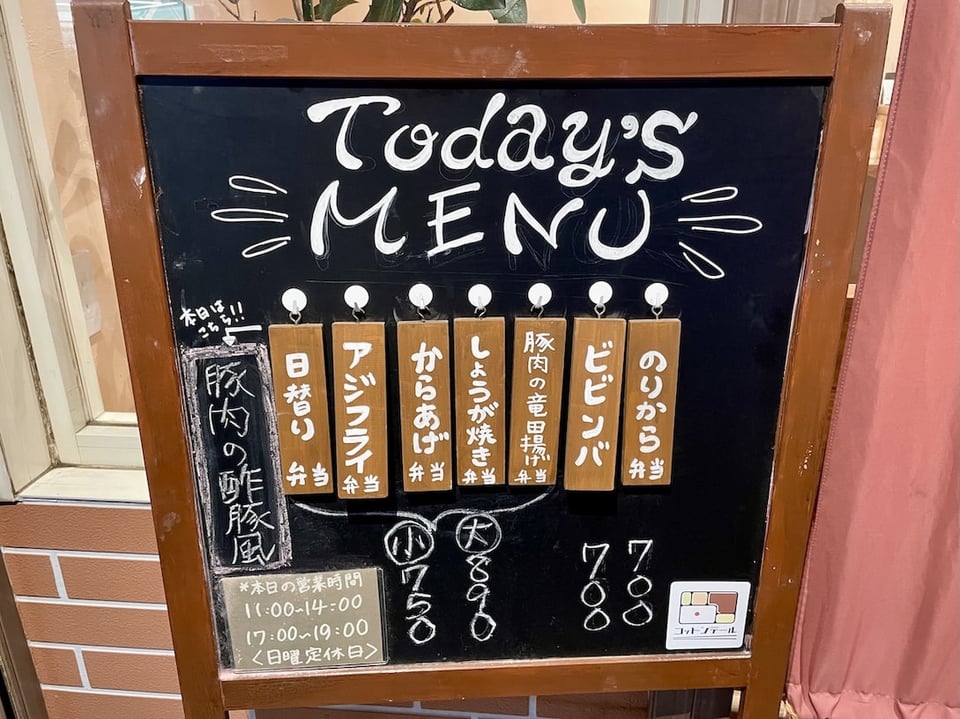 Today's
MENU
本日は
こちら!!
豚肉の酢豚風
日替り弁当
アジフライ弁当
からあげ弁当
しょうが焼き弁当
豚肉の竜田揚げ弁当
ビビンバ
のりから弁当
小 750
大 890
700
700
*本日の営業時間
11:00~14:00
17:00~19:00
<日曜定休日>
コットンテール